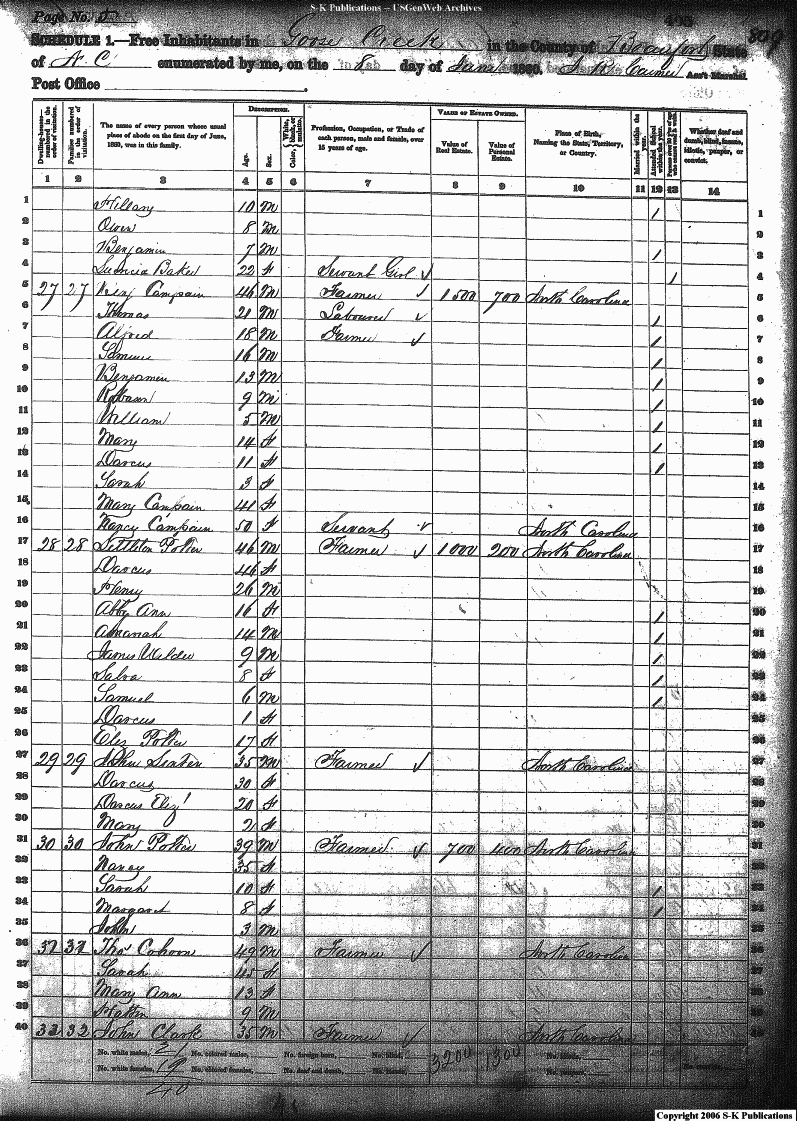 S-K Publications – USGenWeb Archives
Page No.
403
SCHEDULE 1.—Free Inhabitants in Goose Creek in the County of Beaufort State
of N C enumerated by me, on the 8 day of June 1860. Ass't Marshal.
Post Office
Dwelling-houses—numbered in the order of visitation.
Families numbered in the order of visitation.
The name of every person whose usual place of abode on the first day of June, 1860, was in this family.
DESCRIPTION.
Age.
Sex.
Color, White, black, or mulatto.
Profession, Occupation, or Trade of each person, male and female, over 15 years of age.
VALUE OF ESTATE OWNED.
Value of Real Estate.
Value of Personal Estate.
Place of Birth, Naming the State, Territory, or Country.
Married within the year.
Attended School within the year.
Persons over 20 y'rs of age who cannot read & write.
Whether deaf and dumb, blind, insane, idiotic, pauper, or convict.
1 2 3 4 5 6 7 8 9 10 11 12 13 14
1 Hillary 10 M / 1
2 Owen 8 M 2
3 Benjamin 7 M / 3
4 Baker 22 f Servant Girl / 4
5 27 27 Benj Campain 46 M Farmer 1500 700 North Carolina 5
6 Thomas 21 M Labourer / 6
7 Alfred 18 M Farmer / 7
8 Samuel 16 M / 8
9 Benjamin 13 M / 9
10 9 M / 10
11 William 5 M / 11
12 Mary 14 f / 12
13 Darcus 11 f / 13
14 Sarah 3 f 14
15 Mary Campain 41 f 15
16 Nancy Campain 50 f Servant North Carolina 16
17 28 28 Littleton Potter 46 M Farmer 1000 200 North Carolina 17
18 Darcus 46 f 18
19 Henry 26 M 19
20 Abby Ann 16 f / 20
21 Amanah 14 M / 21
22 James 9 M / 22
23 Salva 8 f / 23
24 Samuel 6 M / 24
25 Darcus 1 f 25
26 Eliz Potter 17 f 26
27 29 29 John 35 M Farmer North Carolina 27
28 Darcus 30 f 28
29 Darcus Eliz 20 f 29
30 Mary 2 f 30
31 30 30 John Potter 39 M Farmer 700 400 North Carolina 31
32 Nancy 35 f 32
33 Sarah 10 f / 33
34 Margaret 8 f / 34
35 John 3 M 35
36 31 31 Thos Cohoon 49 M Farmer North Carolina 36
37 Sarah 45 f 37
38 Mary Ann 13 f 38
39 9 M 39
40 32 32 John Clark 35 M Farmer North Carolina 40
No. white males, 21 No. colored males, No. foreign born, No. blind, 3200 1300
No. white females, 19 No. colored females, No. deaf and dumb, No. insane,
40
Copyright 2006 S-K Publications